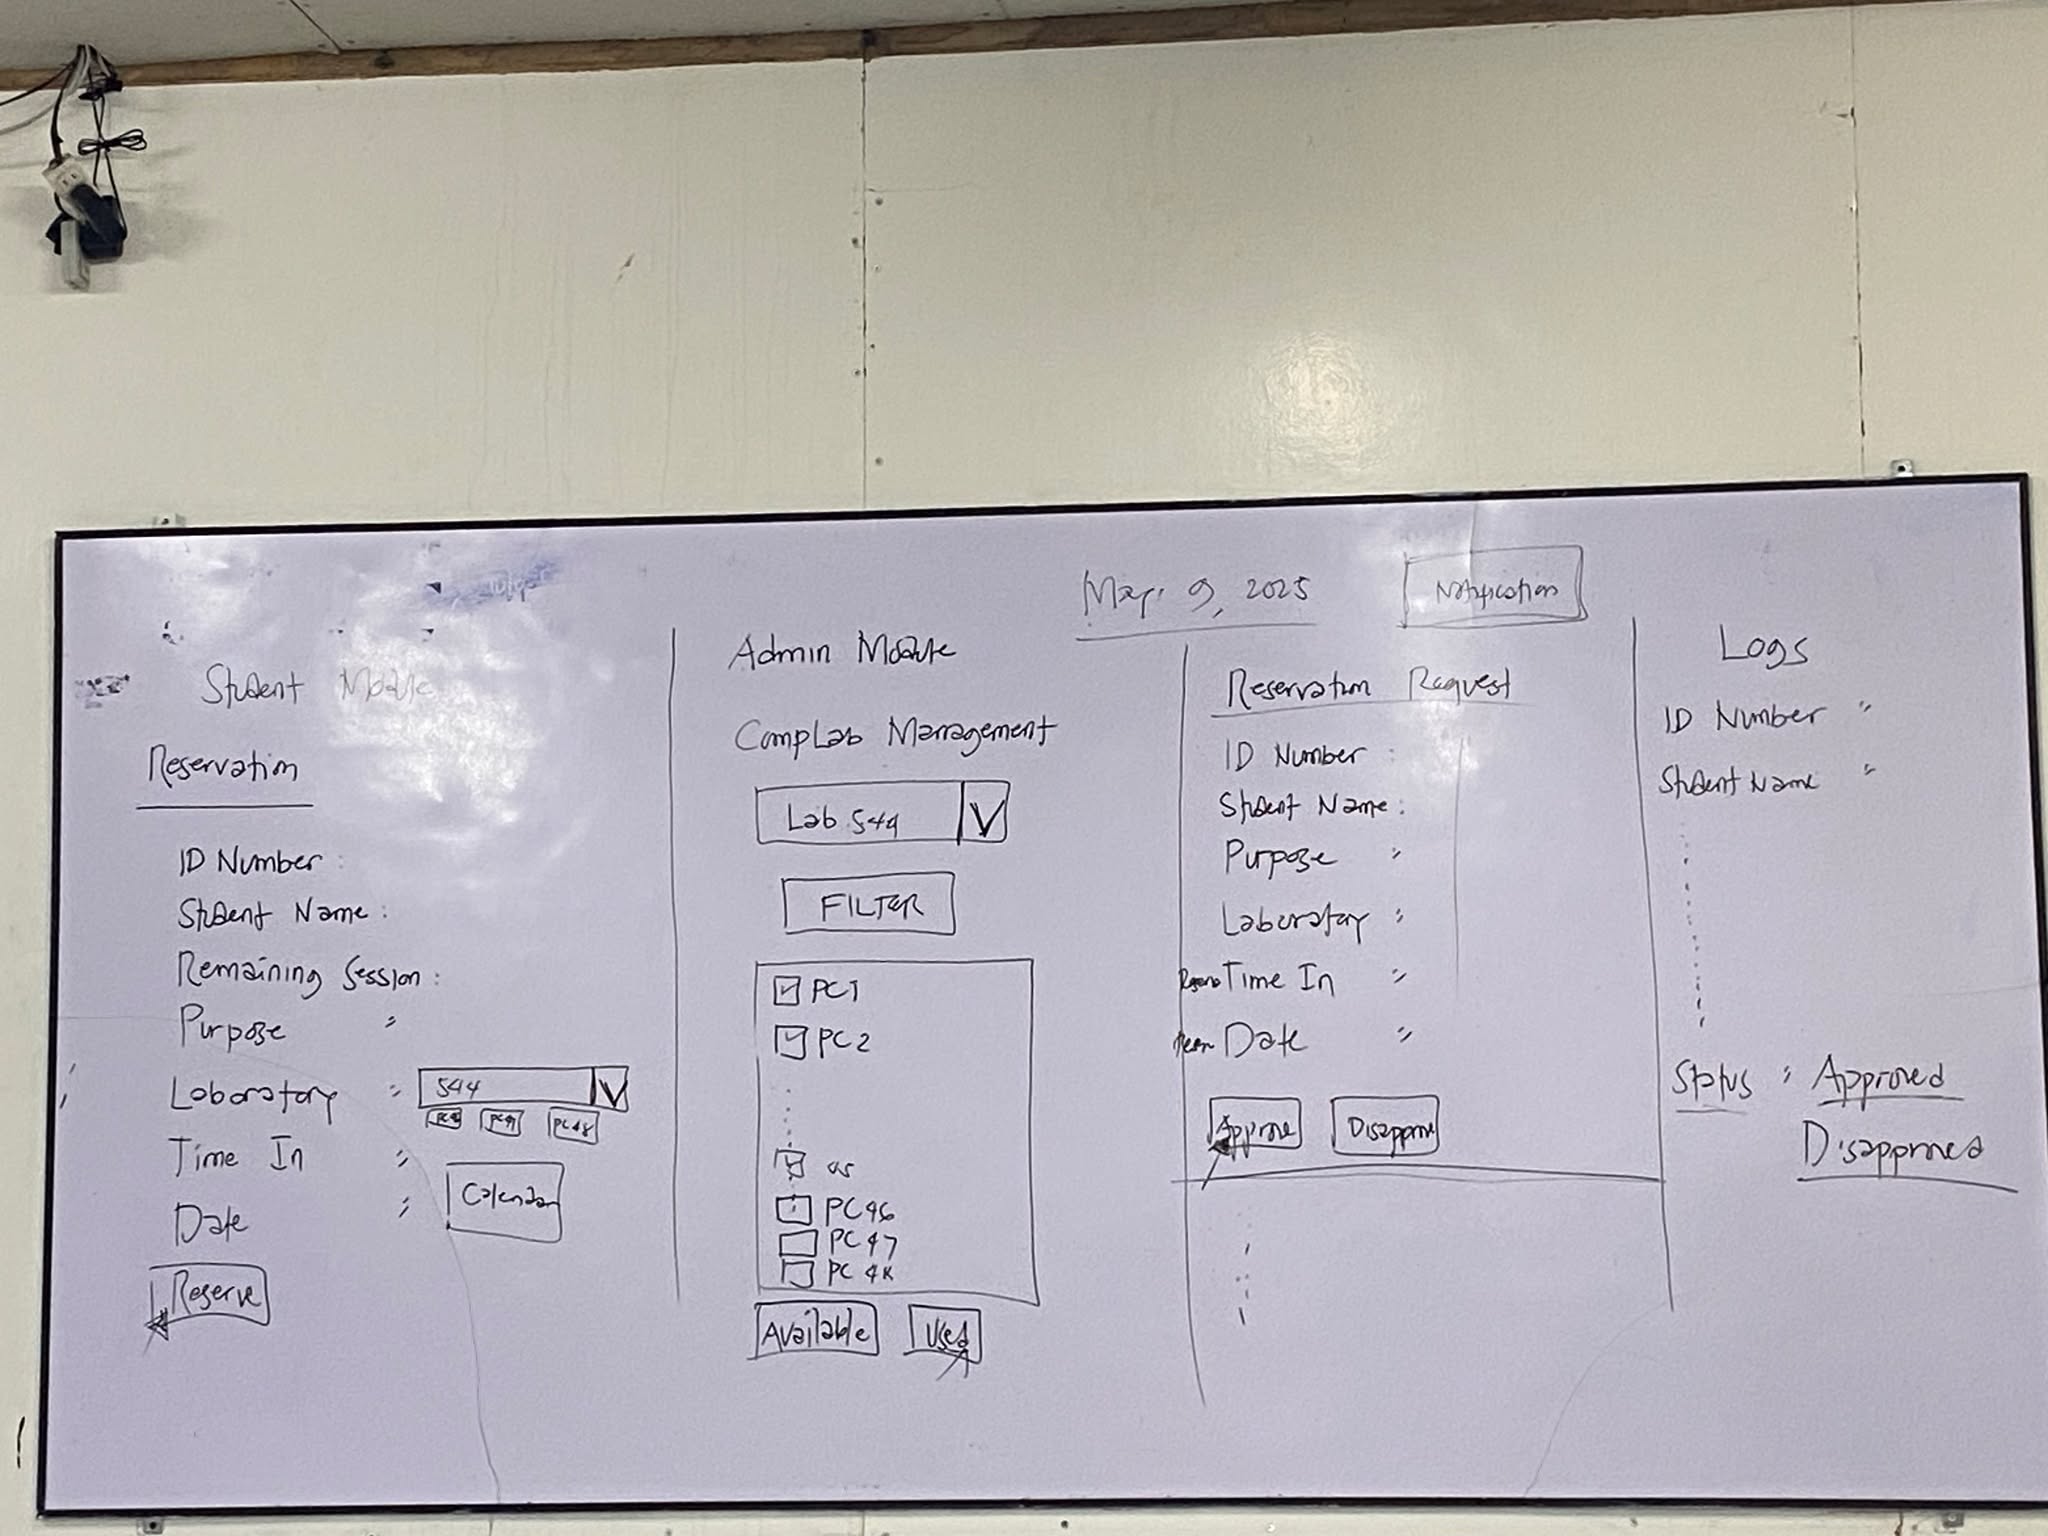 Student Module
Reservation
ID Number :
Student Name :
Remaining Session :
Purpose :
Laboratory : 544 V
PC47 PC48
Time In :
Date : Calendar
Reserve
Admin Module
CompLab Management
Lab 544 V
FILTER
PC1
PC2
PC46
PC47
PC48
Available Used
May 9, 2025
Notification
Reservation Request
ID Number :
Student Name :
Purpose :
Laboratory :
Time In :
Date :
Approve Disapprove
Logs
ID Number :
Student Name :
Status : Approved
Disapproved